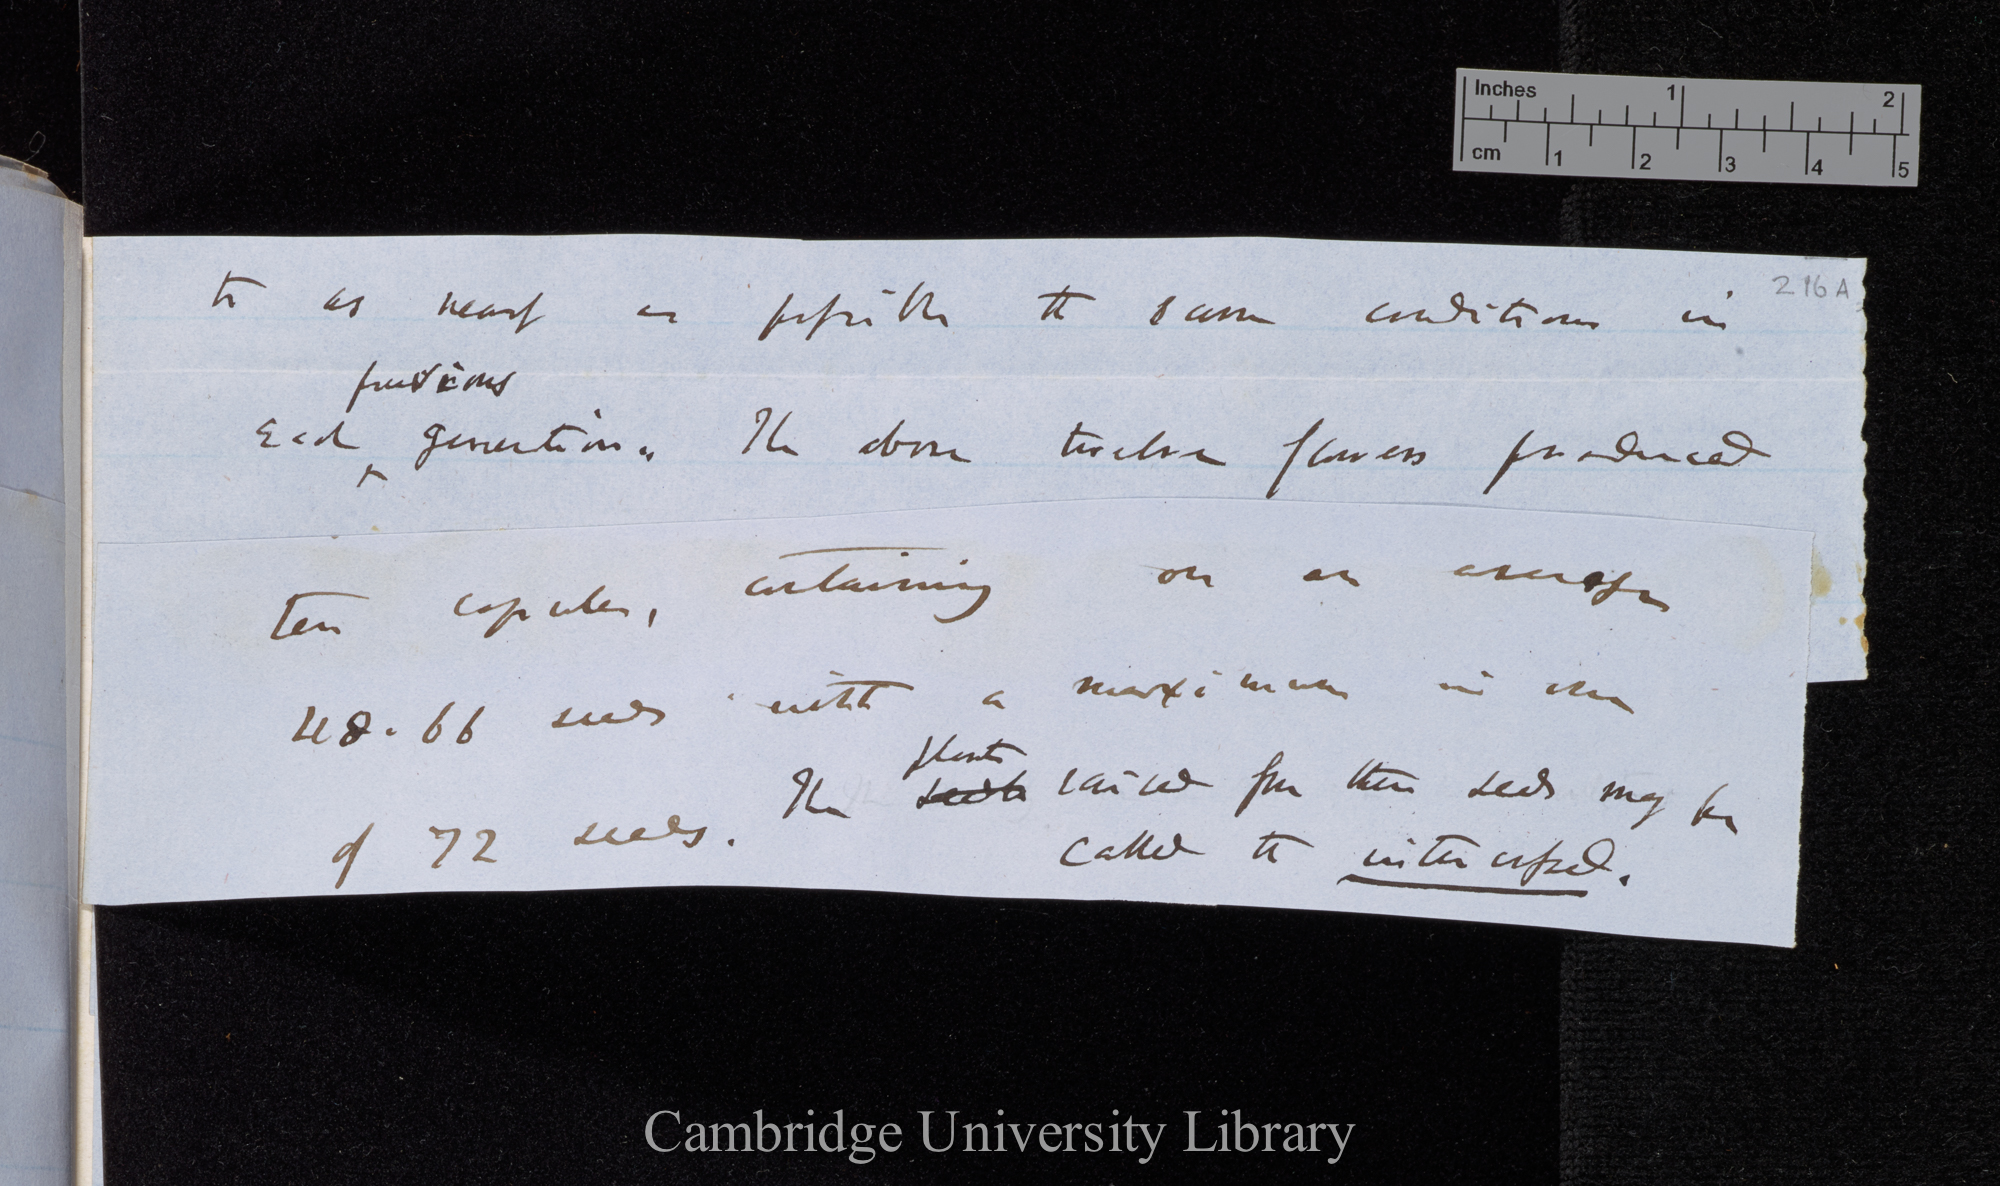 Inches 1 2
cm 1 2 3 4 5
216A
to as nearly as possible the same conditions in
previous
each ^ generation. The above twelve flowers produced
ten capsules, containing on an average
48.66 seeds with a maximum in one
plants
The seeds raised from these seeds may be
of 72 seeds.
called the intercrossed.
Cambridge University Library